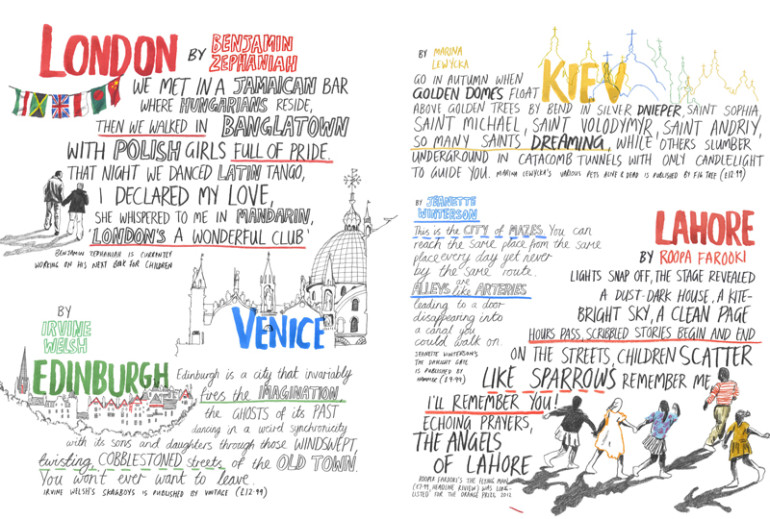 LONDON BY BENJAMIN ZEPHANIAH
WE MET IN A JAMAICAN BAR
WHERE HUNGARIANS RESIDE,
THEN WE WALKED IN BANGLATOWN
WITH POLISH GIRLS FULL OF PRIDE.
THAT NIGHT WE DANCED LATIN TANGO,
I DECLARED MY LOVE,
SHE WHISPERED TO ME IN MANDARIN,
'LONDON'S A WONDERFUL CLUB'
BENJAMIN ZEPHANIAH IS CURRENTLY
WORKING ON HIS NEXT BOOK FOR CHILDREN
VENICE
BY
IRVINE
WELSH
EDINBURGH
Edinburgh is a city that invariably
fires the IMAGINATION
the GHOSTS of its PAST
dancing in a weird synchronicity
with its sons and daughters through those WINDSWEPT,
twisting, COBBLESTONED streets of the OLD TOWN.
You won't ever want to leave.
IRVINE WELSH'S SKAGBOYS IS PUBLISHED BY VINTAGE (£12.99)
BY MARINA
LEWYCKA
KIEV
GO IN AUTUMN WHEN
GOLDEN DOMES FLOAT
ABOVE GOLDEN TREES BY BEND IN SILVER DNIEPER, SAINT SOPHIA,
SAINT MICHAEL, SAINT VOLODYMYR, SAINT ANDRIY,
SO MANY SAINTS DREAMING, WHILE OTHERS SLUMBER
UNDERGROUND IN CATACOMB TUNNELS WITH ONLY CANDLELIGHT
TO GUIDE YOU. MARINA LEWYCKA'S VARIOUS PETS ALIVE & DEAD IS PUBLISHED BY FIG TREE (£12.99)
BY JEANETTE
WINTERSON
This is the CITY of MAZES. You can
reach the same place from the same
place every day yet never
by the same route.
ALLEYS are like ARTERIES
leading to a door
disappearing into
a canal you
could walk on.
JEANETTE WINTERSON'S
THE DAYLIGHT GATE
IS PUBLISHED BY
HAMMER (£9.99)
LAHORE
BY ROOPA FAROOKI
LIGHTS SNAP OFF, THE STAGE REVEALED
A DUST-DARK HOUSE, A KITE-
BRIGHT SKY, A CLEAN PAGE
HOURS PASS, SCRIBBLED STORIES BEGIN AND END
ON THE STREETS, CHILDREN SCATTER
LIKE SPARROWS REMEMBER ME,
I'LL REMEMBER YOU!
ECHOING PRAYERS,
THE ANGELS
OF LAHORE
ROOPA FAROOKI'S THE FLYING MAN
(£7.99, HEADLINE REVIEW) WAS LONG-
LISTED FOR THE ORANGE PRIZE 2012